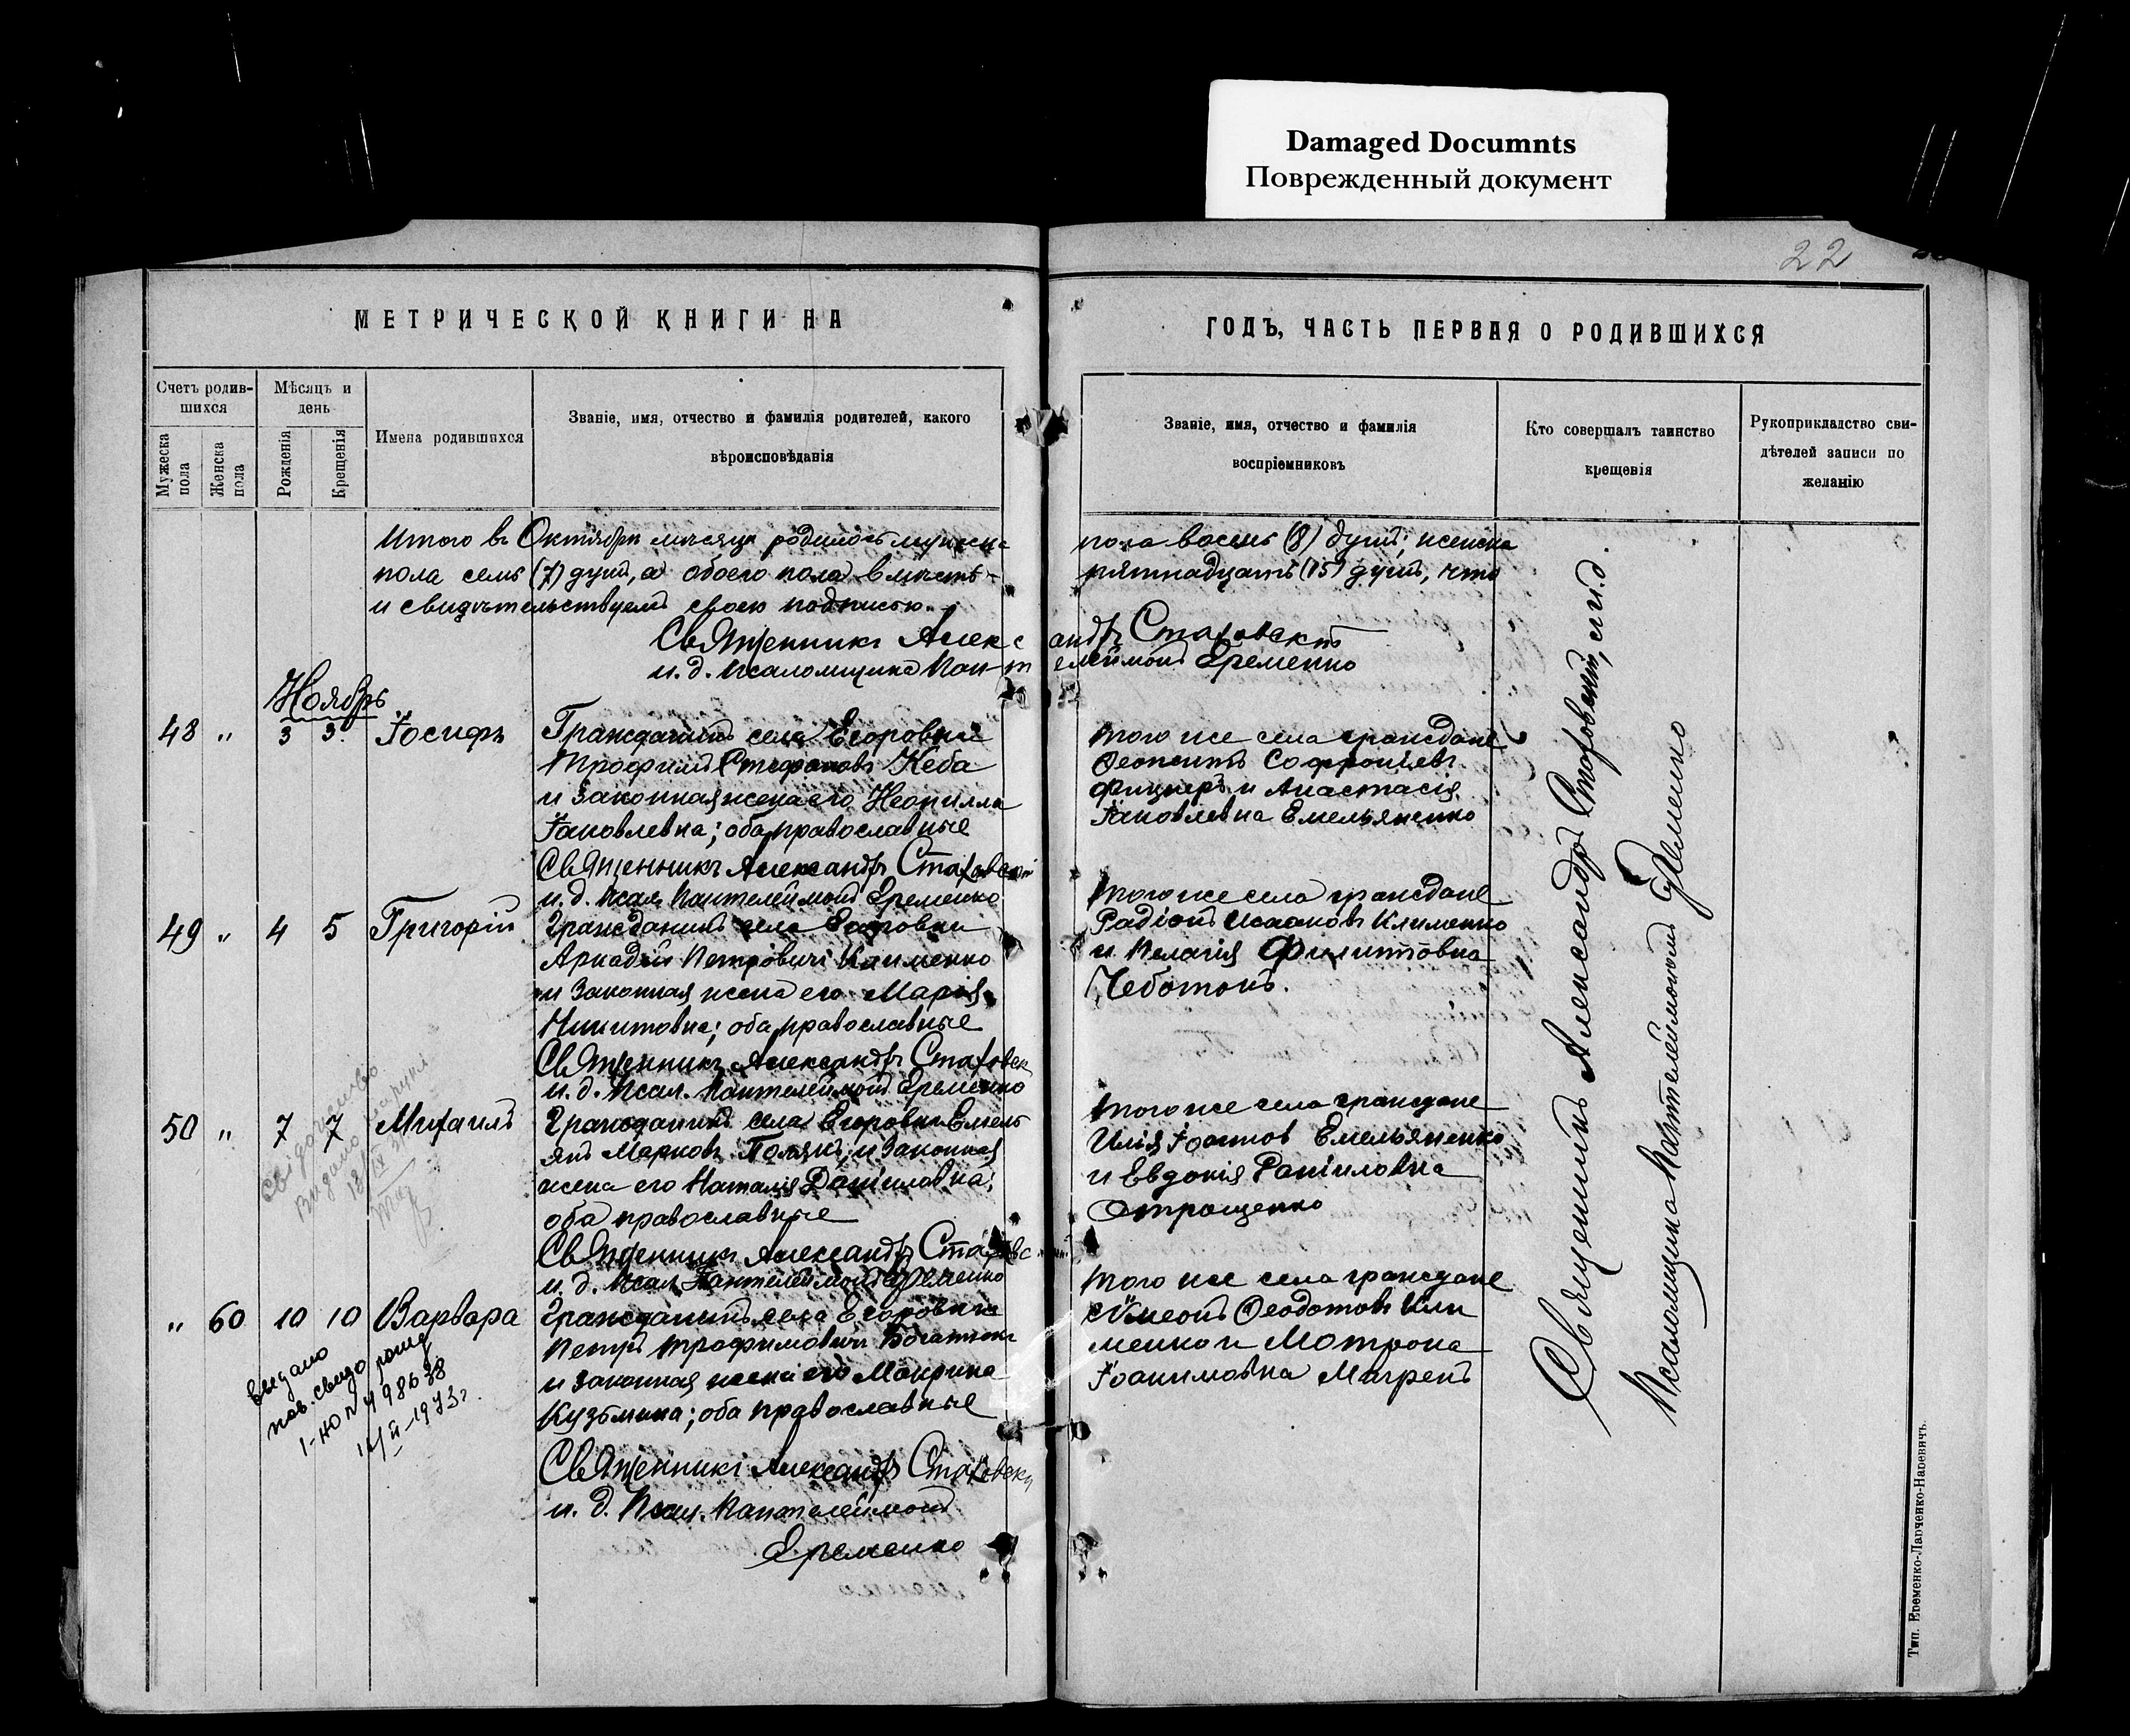 Damaged Documnts
Поврежденный документ
22
МЕТРИЧЕСКОЙ КНИГИ НА
ГОДЪ, ЧАСТЬ ПЕРВАЯ О РОДИВШИХСЯ
Счетъ родив-
шихся
Мѣсяцъ и
день
Мужеска
пола
Женска
пола
Рожденія
Крещенія
Имена родившихся
Званіе, имя, отчество и фамилія родителей, какого
вѣроисповѣданія
Званіе, имя, отчество и фамилія
воспріемниковъ
Кто совершалъ таинство
крещенія
Рукоприкладство сви-
дѣтелей записи по
желанію
Итого въ Октябрѣ мѣсяцѣ родилось мужска
пола восемь (8) душъ, женска
пола семь (7) душъ, а обоего пола вмѣстѣ -
пятнадцать (15) душъ, что
и свидѣтельствуемъ своею подписью.
Священникъ Александръ Стаховскій
и. д. псаломщика Пантелеймонъ Еременко
Ноябрь
48 " 3 3. Іосифъ
Гражданинъ села Егоровки
Трофимъ Стефановъ Кеба
и законная жена его Неонилла
Іаковлевна; оба православные
Священникъ Александръ Стаховскій
и. д. Псал. Пантелеймонъ Еременко
того же села граждане
Леонтій Софроніевъ
и Анастасія
Іаковлевна Емельяненко
49 " 4 5 Григорій
Гражданинъ села Егоровки
Аркадій Петровичъ Клименко
и законная жена его Марія
Никитовна; оба православные
Священникъ Александръ Стаховск
и. д. Псал. Пантелеймонъ Еременко
того же села граждане
Радіонъ Исааковъ Клименко
и Пелагія Филиповна
Чеботокъ.
50 " 7 7 Михаилъ
Гражданинъ села Егоровки Емель
янъ Марковъ Полякъ, и законная
жена его Наталія Даніиловна;
оба православные
Священникъ Александръ Стаховс
и. д. Псал. Пантелеймонъ Еременко
того же села граждане
Илія Іоанновъ Емельяненко
и Евдокія Даніиловна
Отрощенко
Свідоцтво
видано
" 60 10 10 Варвара
Гражданинъ села Егоровки
Петръ Трофимовичъ
и законная жена его Макрина
Кузьмина; оба православные
Священникъ Александръ Стаховск
и. д. Псал. Пантелеймонъ
Еременко
того же села граждане
Сѵмеонъ Феодотовъ Кли
менко и Матрона
Іоакимовна
выдано
пов. свидо рожд
1-НО № 498638
1973г.
Священникъ Александръ Стаховскій, и. д.
Псаломщика Пантелеймонъ Еременко
Тип. Еременко-Ларченко-Наревичъ.